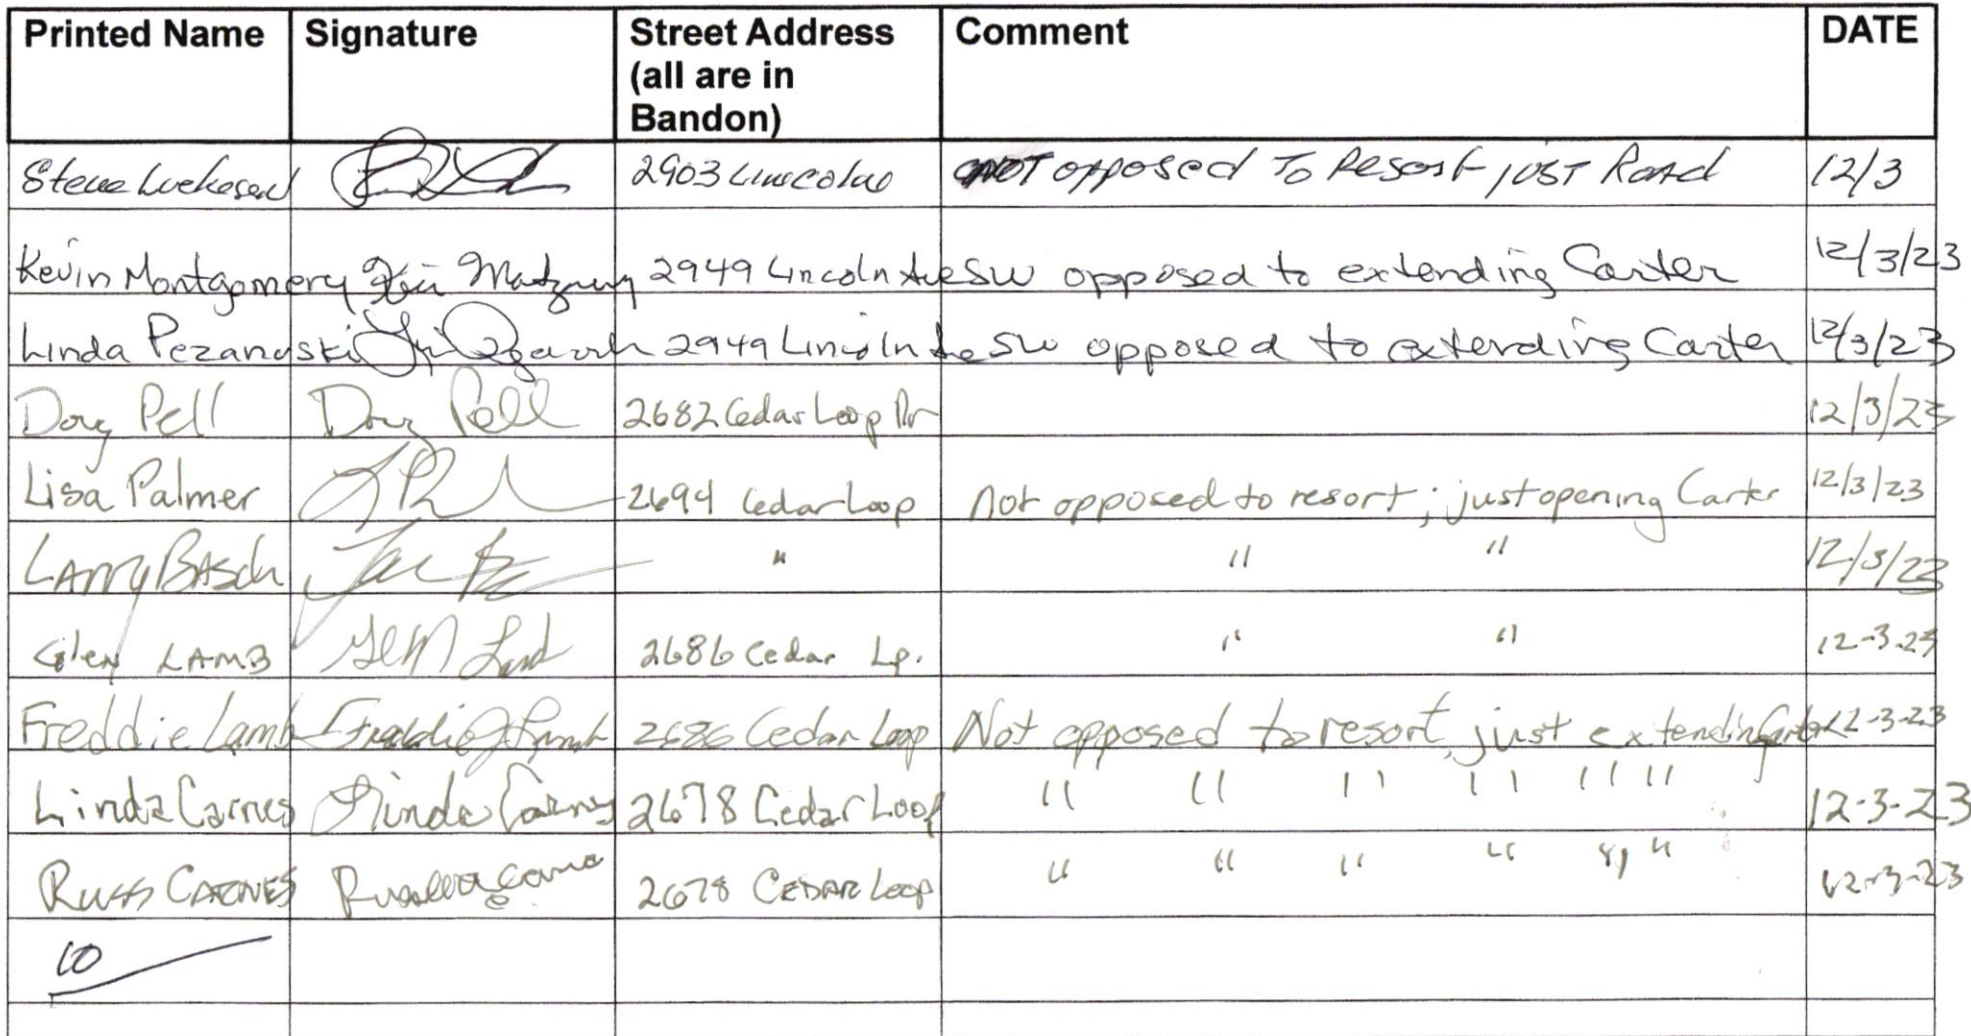 Printed Name Signature Street Address (all are in Bandon) Comment DATE
Steve 2903 Lincoln NOT opposed To Resort just Road 12/3
Kevin Montgomery 2949 Lincoln Ave SW opposed to extending Carter 12/3/23
Linda Pezanoski 2949 Lincoln Ave SW opposed to extending Carter 12/3/23
Doug Pell Doug Pell 2682 Cedar Loop Dr 12/3/23
Lisa Palmer 2694 Cedar Loop Not opposed to resort; just opening Carter 12/3/23
LARRY BASCH " " " 12/3/23
Glen LAMB Glen Lamb 2686 Cedar Lp. " " 12-3-23
Freddie Lamb Freddie J Lamb 2686 Cedar Loop Not opposed to resort, just extending Carter 12-3-23
Linda Carnes Linda Carnes 2678 Cedar Loop " " " " " " 12-3-23
Russ CARNES 2678 CEDAR Loop " " " " " " 12-3-23
10